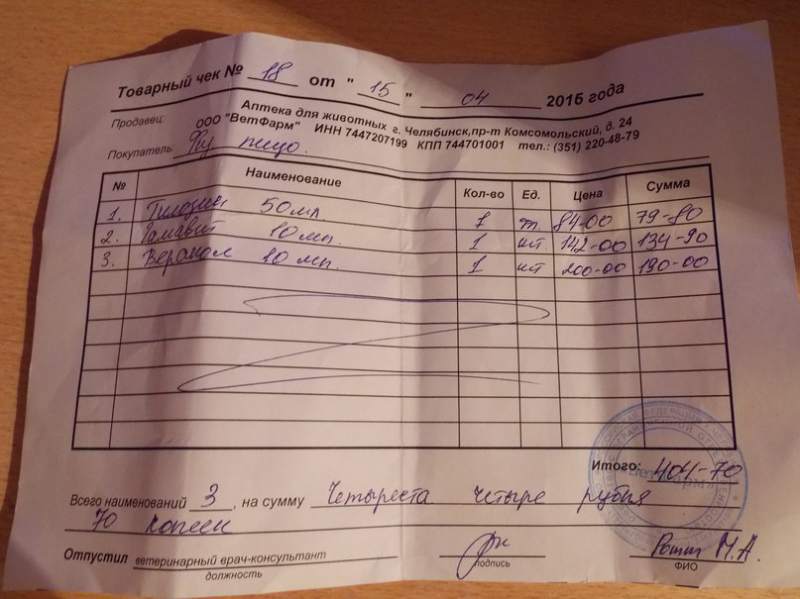 Товарный чек № 18 от " 15 " 04 2016 года
Продавец: Аптека для животных г. Челябинск,пр-т Комсомольский, д. 24
ООО "ВетФарм" ИНН 7447207199 КПП 744701001 тел.: (351) 220-48-79
Покупатель Физ лицо.
№ Наименование Кол-во Ед. Цена Сумма
1. Тилозин 50 мл. 1 84-00 79-80
2. Гамавит 10 мл. 1 шт 142-00 134-90
3. Веракол 10 мл. 1 шт 200-00 190-00
Итого: 404-70
Всего наименований 3, на сумму Четыреста четыре рубля
70 копеек
Отпустил ветеринарный врач-консультант
должность подпись ФИО